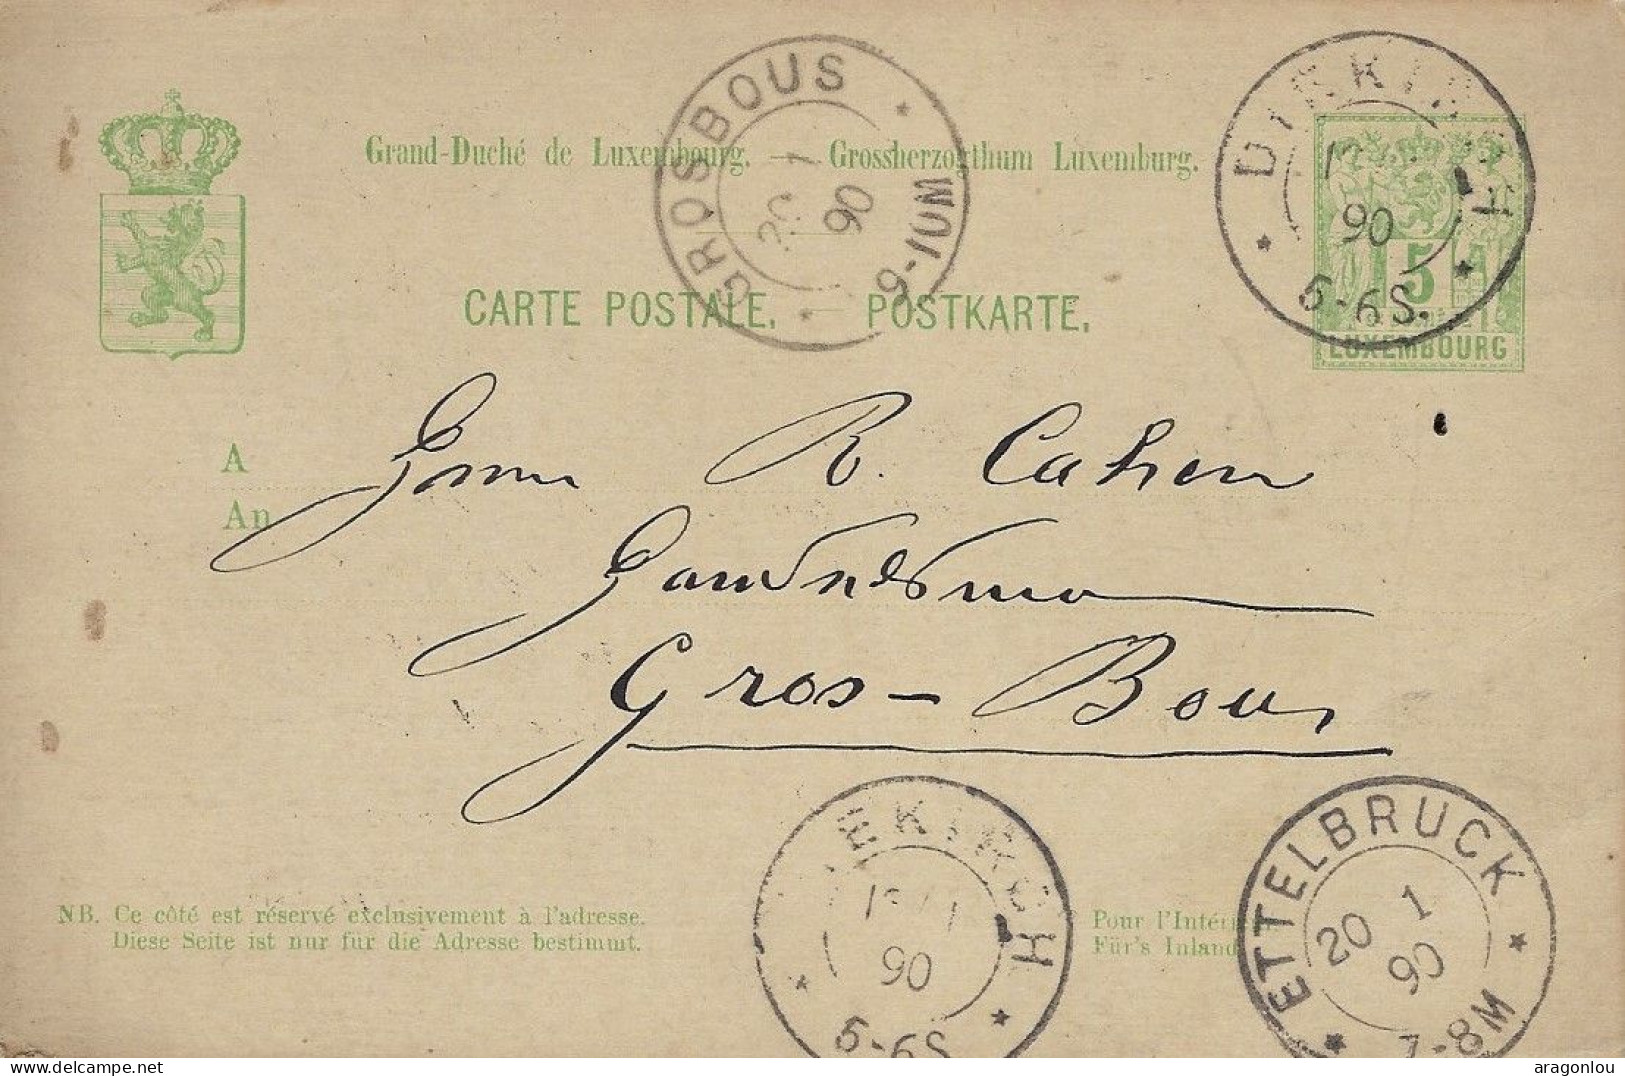 GROSBOUS
20 1
90
9-10M
DIEKIRCH
90
5-6S.
Grand-Duché de Luxembourg. — Grossherzogthum Luxemburg.
CARTE POSTALE. — POSTKARTE.
5
LUXEMBOURG
A
An
R. Cahen
Gros-Bous
DIEKIRCH
90
5-6S
ETTELBRUCK
20 1
90
7-8M
NB. Ce côté est réservé exclusivement à l'adresse.
Diese Seite ist nur für die Adresse bestimmt.
Pour l'Intéri
Für's Inland
aragonlou